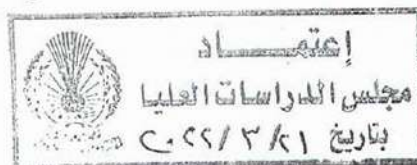 إعتمـــــاد
مجلس الدراسات العليا
بتاريخ ٢٠٢٢/٣/٢١